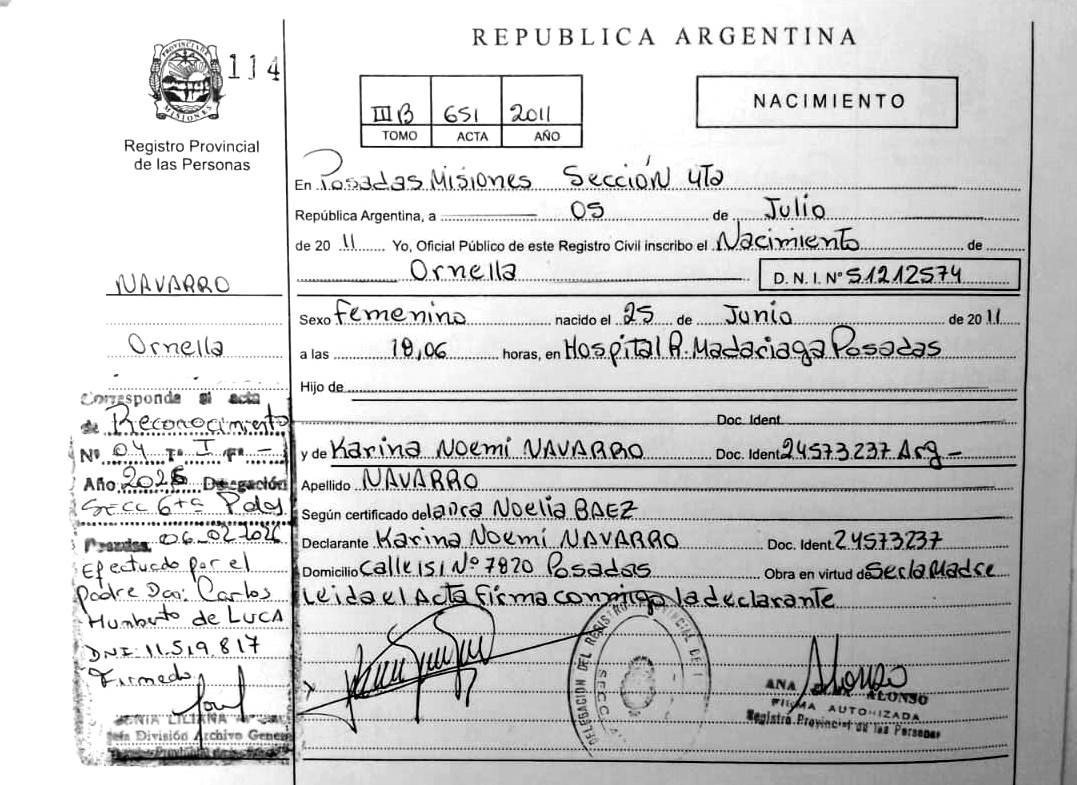 REPUBLICA ARGENTINA
PROVINCIA DE MISIONES
114
Registro Provincial
de las Personas
III B 651 2011
TOMO ACTA AÑO
NACIMIENTO
En Posadas Misiones Sección 4ta
República Argentina, a 05 de Julio
de 2011 Yo, Oficial Público de este Registro Civil inscribo el Nacimiento de
Ornella D. N. I. Nº 51212574
Sexo femenino nacido el 25 de Junio de 2011
a las 18,06 horas, en Hospital R. Madariaga Posadas
Hijo de
Doc. Ident.
y de Karina Noemí NAVARRO Doc. Ident 24573237 Arg -
Apellido NAVARRO
Según certificado de Noelia BAEZ
Declarante Karina Noemí NAVARRO Doc. Ident. 24573237
Domicilio Calle 151 Nº 7820 Posadas Obra en virtud de Ser la Madre
Leida el Acta firma conmigo la declarante
DELEGACION DEL REGISTRO PROVINCIAL DE
SECC
Alonso
ANA ALONSO
FIRMA AUTORIZADA
Registro Provincial de las Personas
NAVARRO
Ornella
Corresponde al acta
de Reconocimiento
Nº 04 Tº I Fº -
Año 2026 Delegación
Secc 6ta Pdas
Posadas, 06-02-2026
Efectuado por el
padre Don: Carlos
Humberto de LUCA
DNI: 11.519.817
Firmado
SONIA LILIANA
Jefa División Archivo General